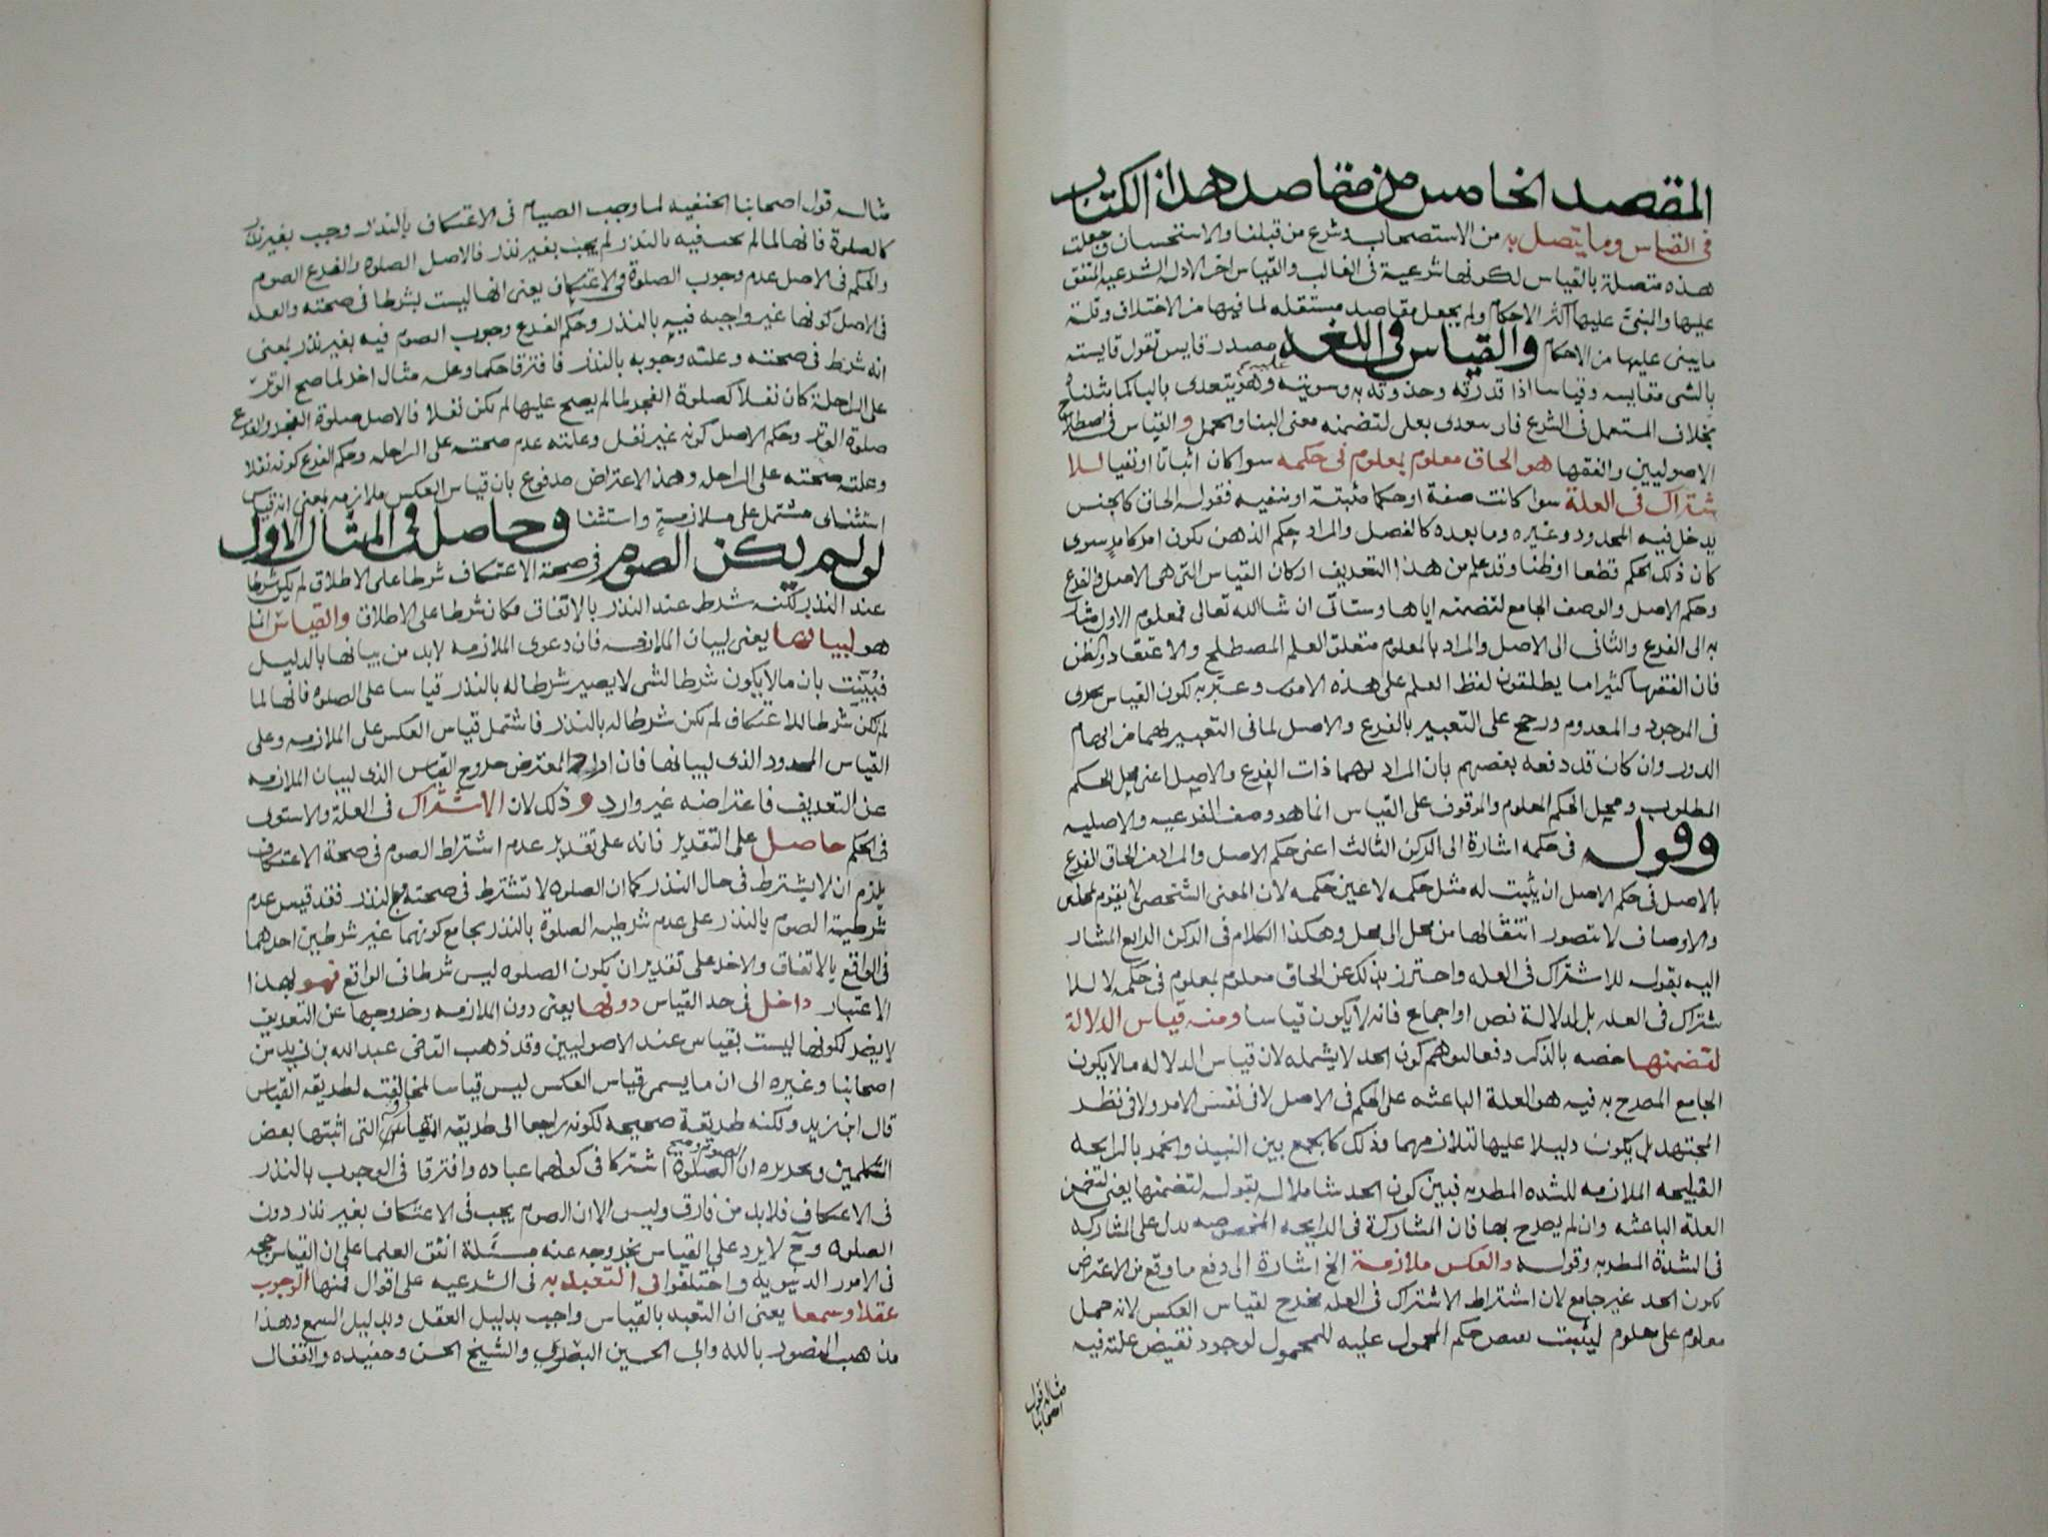 المقصد الخامس من مقاصد هذا الكتاب
فى القياس وما يتصل به من الاستصحاب وشرع من قبلنا والاستحسان وجعلت
هذه متصلة بالقياس لكونها شرعية فى الغالب والقياس اخر الادلة الشرعية المتفق
عليها والمبنى عليها اكثر الاحكام ولم يجعل مقاصد مستقله لما فيها من الاختلاف وقلة
ما يبنى عليها من الاحكام والقياس فى اللغه مصدر قايس تقول قايسته
بالشى مقايسه وقياسا اذا قدرته وحذوته به وسويته عليه وهو يتعدى بالبا كما مثلنا
بخلاف المستعمل فى الشرع فانه يتعدى بعلى لتضمنه معنى البنا والحمل والقياس فى اصطلاح
الاصوليين والفقها هو الحاق معلوم بمعلوم فى حكمه سوا كان اثباتا او نفيا للا
شتراك فى العلة سوا كانت صفة او حكما مثبتة او منفيه فقوله الحاق كالجنس
يدخل فيه المحدود وغيره وما بعده كالفصل والمراد حكم الذهن بكون امر كامر سوى
كان ذلك الحكم قطعا او ظنا وقد علم من هذا التعريف اركان القياس التى هى الاصل والفرع
وحكم الاصل والوصف الجامع لتضمنه اياها وستاتى ان شا الله تعالى فمعلوم الاول مشار
به الى الفرع والثانى الى الاصل والمراد بالمعلوم متعلق العلم المصطلح والاعتقاد والظن
فان الفقها كثيرا ما يطلقون لفظ العلم على هذه الامور وعبر به لكون القياس يجرى
فى الموجود والمعدوم ورجح على التعبير بالفرع والاصل لما فى التعبير بهما من ايهام
الدور وان كان قد دفعه بعضهم بان المراد بهما ذات الفرع والاصل اعنى محل الحكم
المطلوب ومحل الحكم المعلوم والموقوف على القياس انما هو وصف الفرعيه والاصليه
وقوله فى حكمه اشارة الى الركن الثالث اعنى حكم الاصل والمراد من الحاق الفرع
بالاصل فى حكم الاصل ان يثبت له مثل حكمه لا عين حكمه لان المعنى الشخصى لا يقوم بمحلين
والاوصاف لا يتصور انتقالها من محل الى محل وهكذا الكلام فى الركن الرابع المشار
اليه بقوله للاشتراك فى العله واحترز بذلك عن الحاق معلوم بمعلوم فى حكمه لا للا
شتراك فى العله بل لدلالة نص او اجماع فانه لا يكون قياسا ومنه قياس الدلالة
لتضمنها خصه بالذكر دفعا لتوهم كون الحد لا يشمله لان قياس الدلاله ما لا يكون
الجامع المصرح به فيه هو العلة الباعثه على الحكم فى الاصل لا فى نفس الامر ولا فى نظر
المجتهد بل يكون دليلا عليها لتلازمهما وذلك كما يجمع بين النبيذ والخمر بالرايحه
القبيحه الملازمه للشده المطربه فبين كون الحد شاملا له بقوله لتضمنها يعنى لتضمن
العلة الباعثه وان لم يصرح بها فان المشاركة فى الرايحه المخصوصه يدل على المشاركه
فى الشدة المطربه وقوله والعكس ملازمة الخ اشارة الى دفع ما وقع من الاعتراض
بكون الحد غير جامع لان اشتراط الاشتراك فى العله مخرج لقياس العكس لانه حمل
معلوم على معلوم ليثبت نقيض حكم المحمول عليه للمحمول لوجود نقيض علته فيه
مثاله قول
اصحابنا
مثاله قول اصحابنا الحنفيه لما وجب الصيام فى الاعتكاف بالنذر وجب بغير نذر
كالصلوة فانها لما لم تجب فيه بالنذر لم يجب بغير نذر فالاصل الصلوه والفرع الصوم
والحكم فى الاصل عدم وجوب الصلوة فى الاعتكاف يعنى انها ليست بشرط فى صحته والعله
فى الاصل كونها غير واجبه فيه بالنذر وحكم الفرع وجوب الصوم فيه بغير نذر بمعنى
انه شرط فى صحته وعلته وجوبه بالنذر فافترقا حكما وعله مثال اخر لما صح الوتر
على الراحلة كان نفلا كصلوة الفجر لما لم يصح عليها لم تكن نفلا فالاصل صلوة الفجر والفرع
صلوة الوتر وحكم الاصل كونه غير نفل وعلته عدم صحته على الراحله وحكم الفرع كونه نفلا
وعلته صحته على الراحله وهذا الاعتراض مدفوع بان قياس العكس ملازمه بمعنى انه قياس
استثناى مشتمل على ملازمة واستثنا وحاصل فى المثال الاول
لو لم يكن الصوم فى صحة الاعتكاف شرطا على الاطلاق لم يكن شرطا
عند النذر لكنه شرط عند النذر بالاتفاق فكان شرطا على الاطلاق والقياس انما
هو لبيانها يعنى لبيان الملازمه فان دعوى الملازمه لا بد من بيانها بالدليل
فبُيّنت بان ما لا يكون شرطا لشى لا يصير شرطا له بالنذر قياسا على الصلوه فانها لما
لم تكن شرطا للاعتكاف لم تكن شرطا له بالنذر فاشتمل قياس العكس على الملازمه وعلى
القياس المحدود الذى لبيانها فان اراد المعترض خروج القياس الذى لبيان الملازمه
عن التعريف فاعتراضه غير وارد وذلك لان الاشتراك فى العلة والاستوى
فى الحكم حاصل على التقدير فانه على تقدير عدم اشتراط الصوم فى صحة الاعتكاف
يلزم ان لا يشترط فى حال النذر كما ان الصلوه لا تشترط فى صحته مع النذر فقد قيس عدم
شرطية الصوم بالنذر على عدم شرطيه الصلوة بالنذر بجامع كونهما غير شرطين احدهما
فى الواقع بالاتفاق والاخر على تقدير ان يكون الصلوه ليس شرطا فى الواقع فهو بهذا
الاعتبار داخل فى حد القياس دونها يعنى دون الملازمه وخروجها عن التعريف
لا يضر لكونها ليست بقياس عند الاصوليين وقد ذهب القاضى عبدالله بن زيد من
اصحابنا وغيره الى ان ما يسمى قياس العكس ليس قياسا لمخالفته لطريقه القياس
قال ابن زيد ولكنه طريقة صحيحه لكونه راجعا الى طريقه القياس التى اثبتها بعض
المتكلمين وتحريره ان الصوم والصلوة اشتركا فى كونهما عباده وافترقا فى الوجوب بالنذر
فى الاعتكاف فلا بد من فارق وليس الا ان الصوم يجب فى الاعتكاف بغير نذر دون
الصلوه وح لا يرد على القياس بخروجه عنه مسئلة اتفق العلما على ان القياس حجه
فى الامور الدنيويه واختلفوا فى التعبد به فى الشرعيه على اقوال فمنها الوجوب
عقلا وسمعا يعنى ان التعبد بالقياس واجب بدليل العقل وبدليل السمع وهذا
مذهب المنصور بالله وابى الحسين البصرى والشيخ الحسن وحفيده والقفال